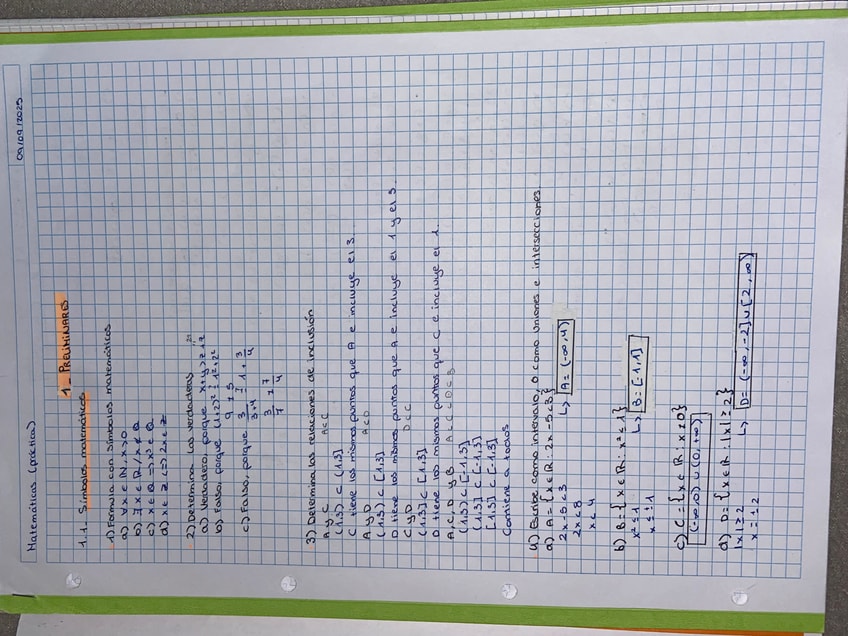 Matemáticas (práctica)
09/09/2025
1_ PRELIMINARES
1.1_ Símbolos matemáticos
1) Formula con símbolos matemáticos
a) ∀x ∈ N, x > 0
b) ∃ x ∈ R / x ∉ Q
c) x ∈ Q => x² ∈ Q
d) x ∈ Z <=> 2x ∈ Z
2) Determina las verdaderas
a) Verdadero, porque
b) Falso, porque (1+2)² ≟ 1²+2²
9 ≠ 5
c) Falso, porque 3/(3+4) ≟ 1 + 3/4
3/7 ≠ 7/4
3) Determina las relaciones de inclusión
A y C A⊂C
(1,3) ⊂ (1,3]
C tiene los mismos puntos que A e incluye el 3.
A y D A⊂D
(1,3) ⊂ [1,3]
D tiene los mismos puntos que A e incluye el 1 y el 3.
C y D D⊂C
(1,3] ⊂ [1,3]
D tiene los mismos puntos que C e incluye el 1.
A, C, D y B A⊂C⊂D⊂B
(1,3) ⊂ [-1,3]
(1,3] ⊂ [-1,3]
[1,3] ⊂ [-1,3]
Contiene a todos
4) Escribe como intervalo, o como uniones e intersecciones
a) A = {x ∈ R : 2x-5<3}
2x-5<3 ↳ A = (-∞,4)
2x<8
x<4
b) B = {x ∈ R : x² ≤ 1}
x² ≤ 1 ↳ B = [-1,1]
x ≤ ±1
c) C = {x ∈ R : x ≠ 0}
(-∞,0) ∪ (0,+∞)
d) D = {x ∈ R : |x| ≥ 2}
|x| ≥ 2 ↳ D = (-∞,-2] ∪ [2,∞)
x = ±2